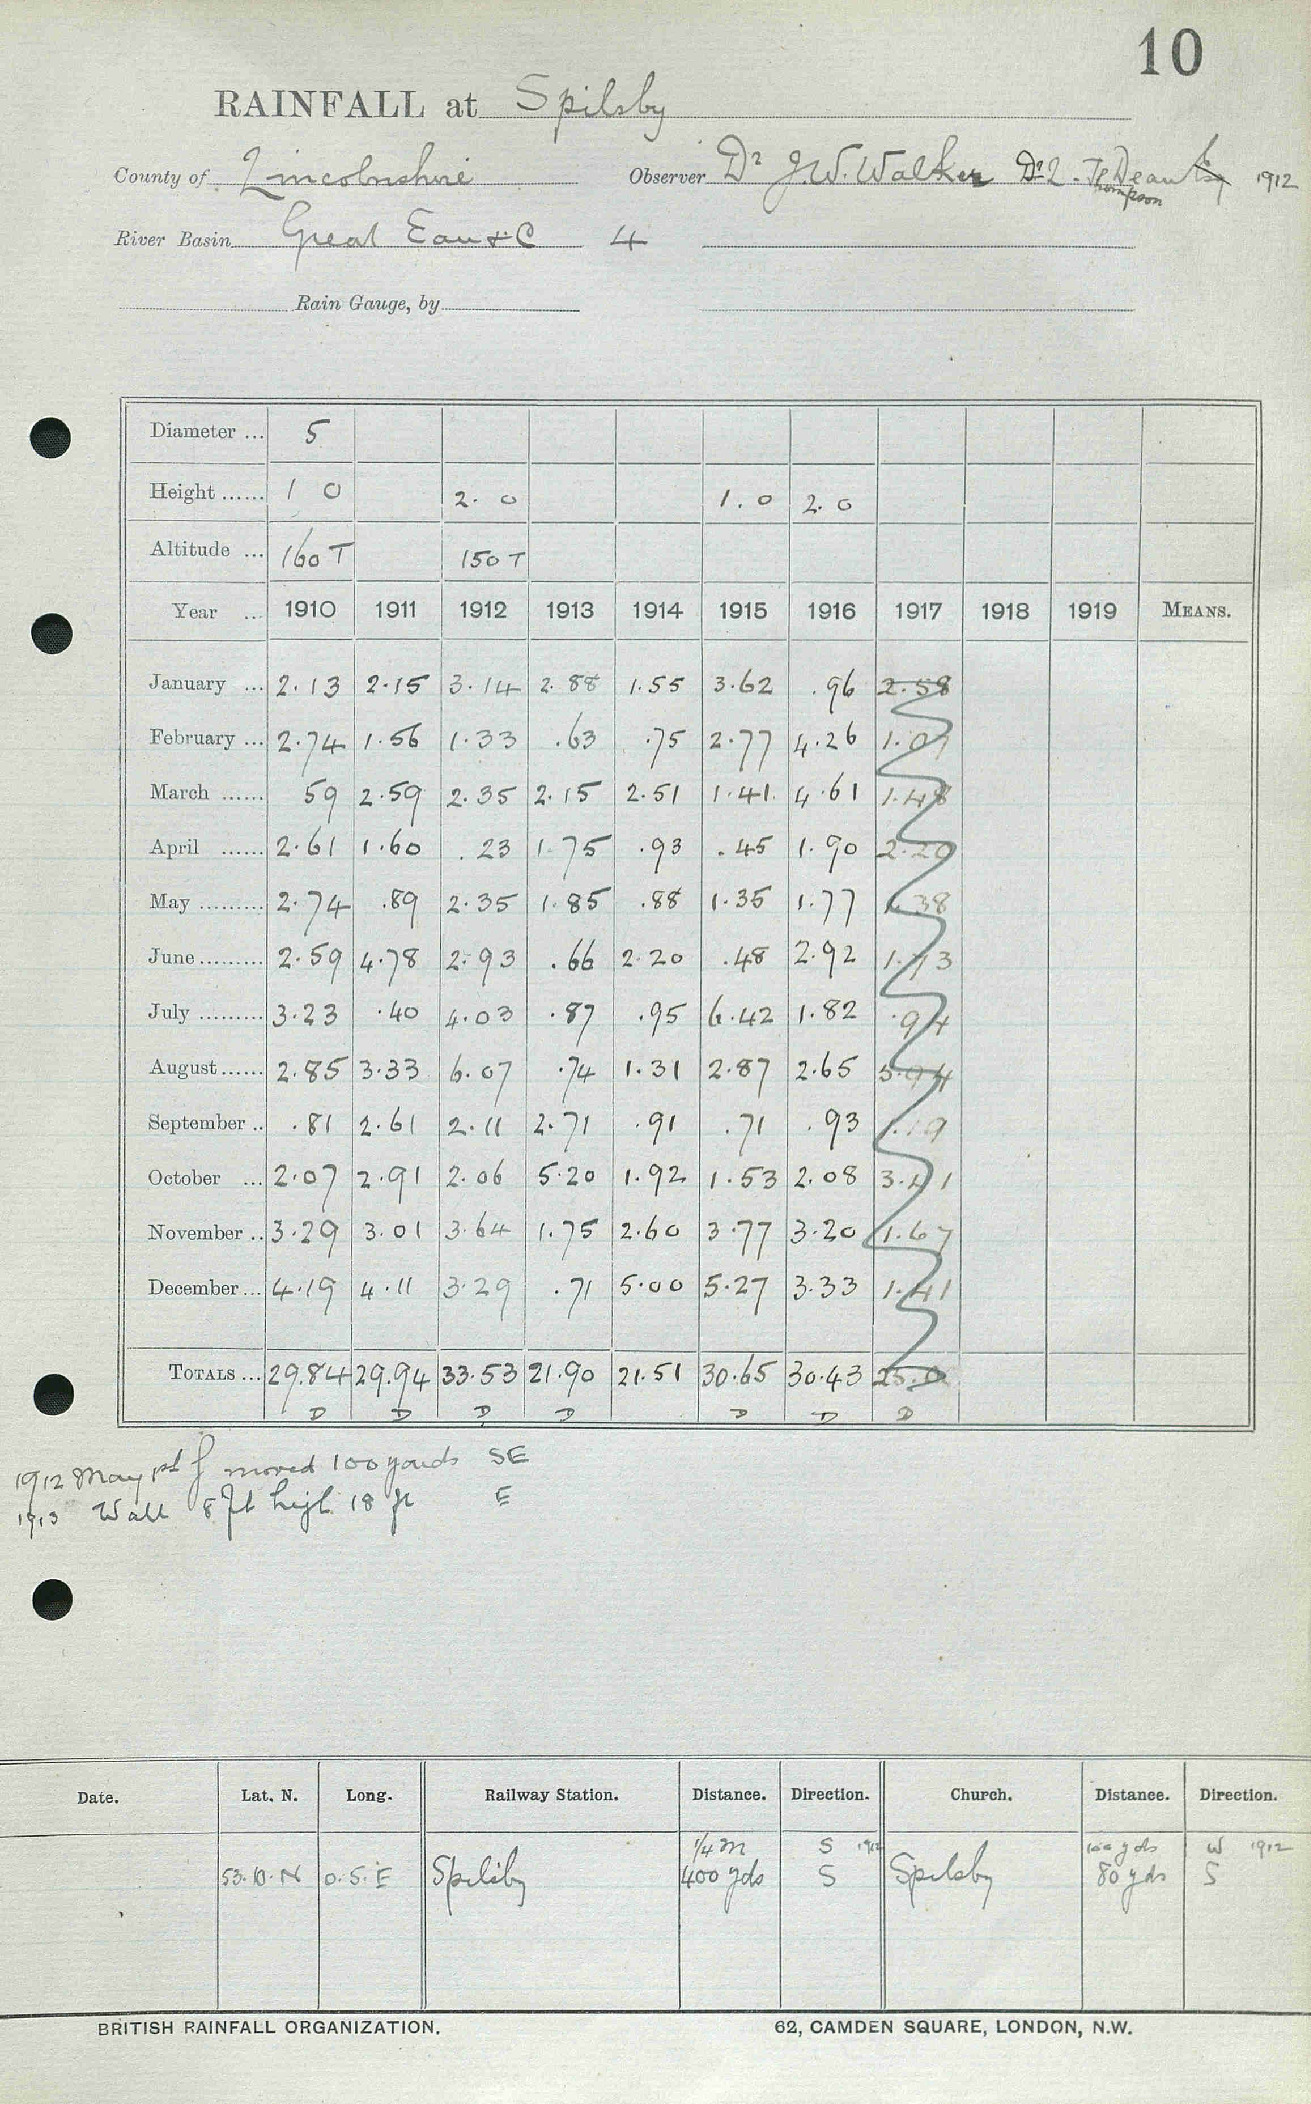 10
RAINFALL at Spilsby
County of Lincolnshire Observer Dr J.W. Walker Dr L. Thompson 1912
River Basin Great Eau &c 4
Rain Gauge, by
Diameter ... 5
Height ...... 1 0 2. 0 1. 0 2. 0
Altitude ... 160 T 150 T
Year ... 1910 1911 1912 1913 1914 1915 1916 1917 1918 1919 MEANS.
January ... 2.13 2.15 3.14 2.88 1.55 3.62 .96 2.58
February ... 2.74 1.56 1.33 .63 .75 2.77 4.26
March ...... 59 2.59 2.35 2.15 2.51 1.41 4.61 1.48
April ...... 2.61 1.60 .23 1.75 .93 .45 1.90 2.20
May ......... 2.74 .89 2.35 1.85 .88 1.35 1.77
June ......... 2.59 4.78 2.93 .66 2.20 .48 2.92
July ......... 3.23 .40 4.03 .87 .95 6.42 1.82 .94
August ...... 2.85 3.33 6.07 .74 1.31 2.87 2.65
September .. .81 2.61 2.11 2.71 .91 .71 .93
October ... 2.07 2.91 2.06 5.20 1.92 1.53 2.08
November .. 3.29 3.01 3.64 1.75 2.60 3.77 3.20 1.67
December ... 4.19 4.11 3.29 .71 5.00 5.27 3.33 1.41
TOTALS ... 29.84 29.94 33.53 21.90 21.51 30.65 30.43
D D D D D D D
1912 May 1st moved 100 yards SE
1913 Wall 8 ft high 18 ft E
Date. Lat. N. Long. Railway Station. Distance. Direction. Church. Distance. Direction.
1/4 m S 1912 100 yds W 1912
53.10.N 0.5.E Spilsby 400 yds S Spilsby 80 yds S
BRITISH RAINFALL ORGANIZATION. 62, CAMDEN SQUARE, LONDON, N.W.